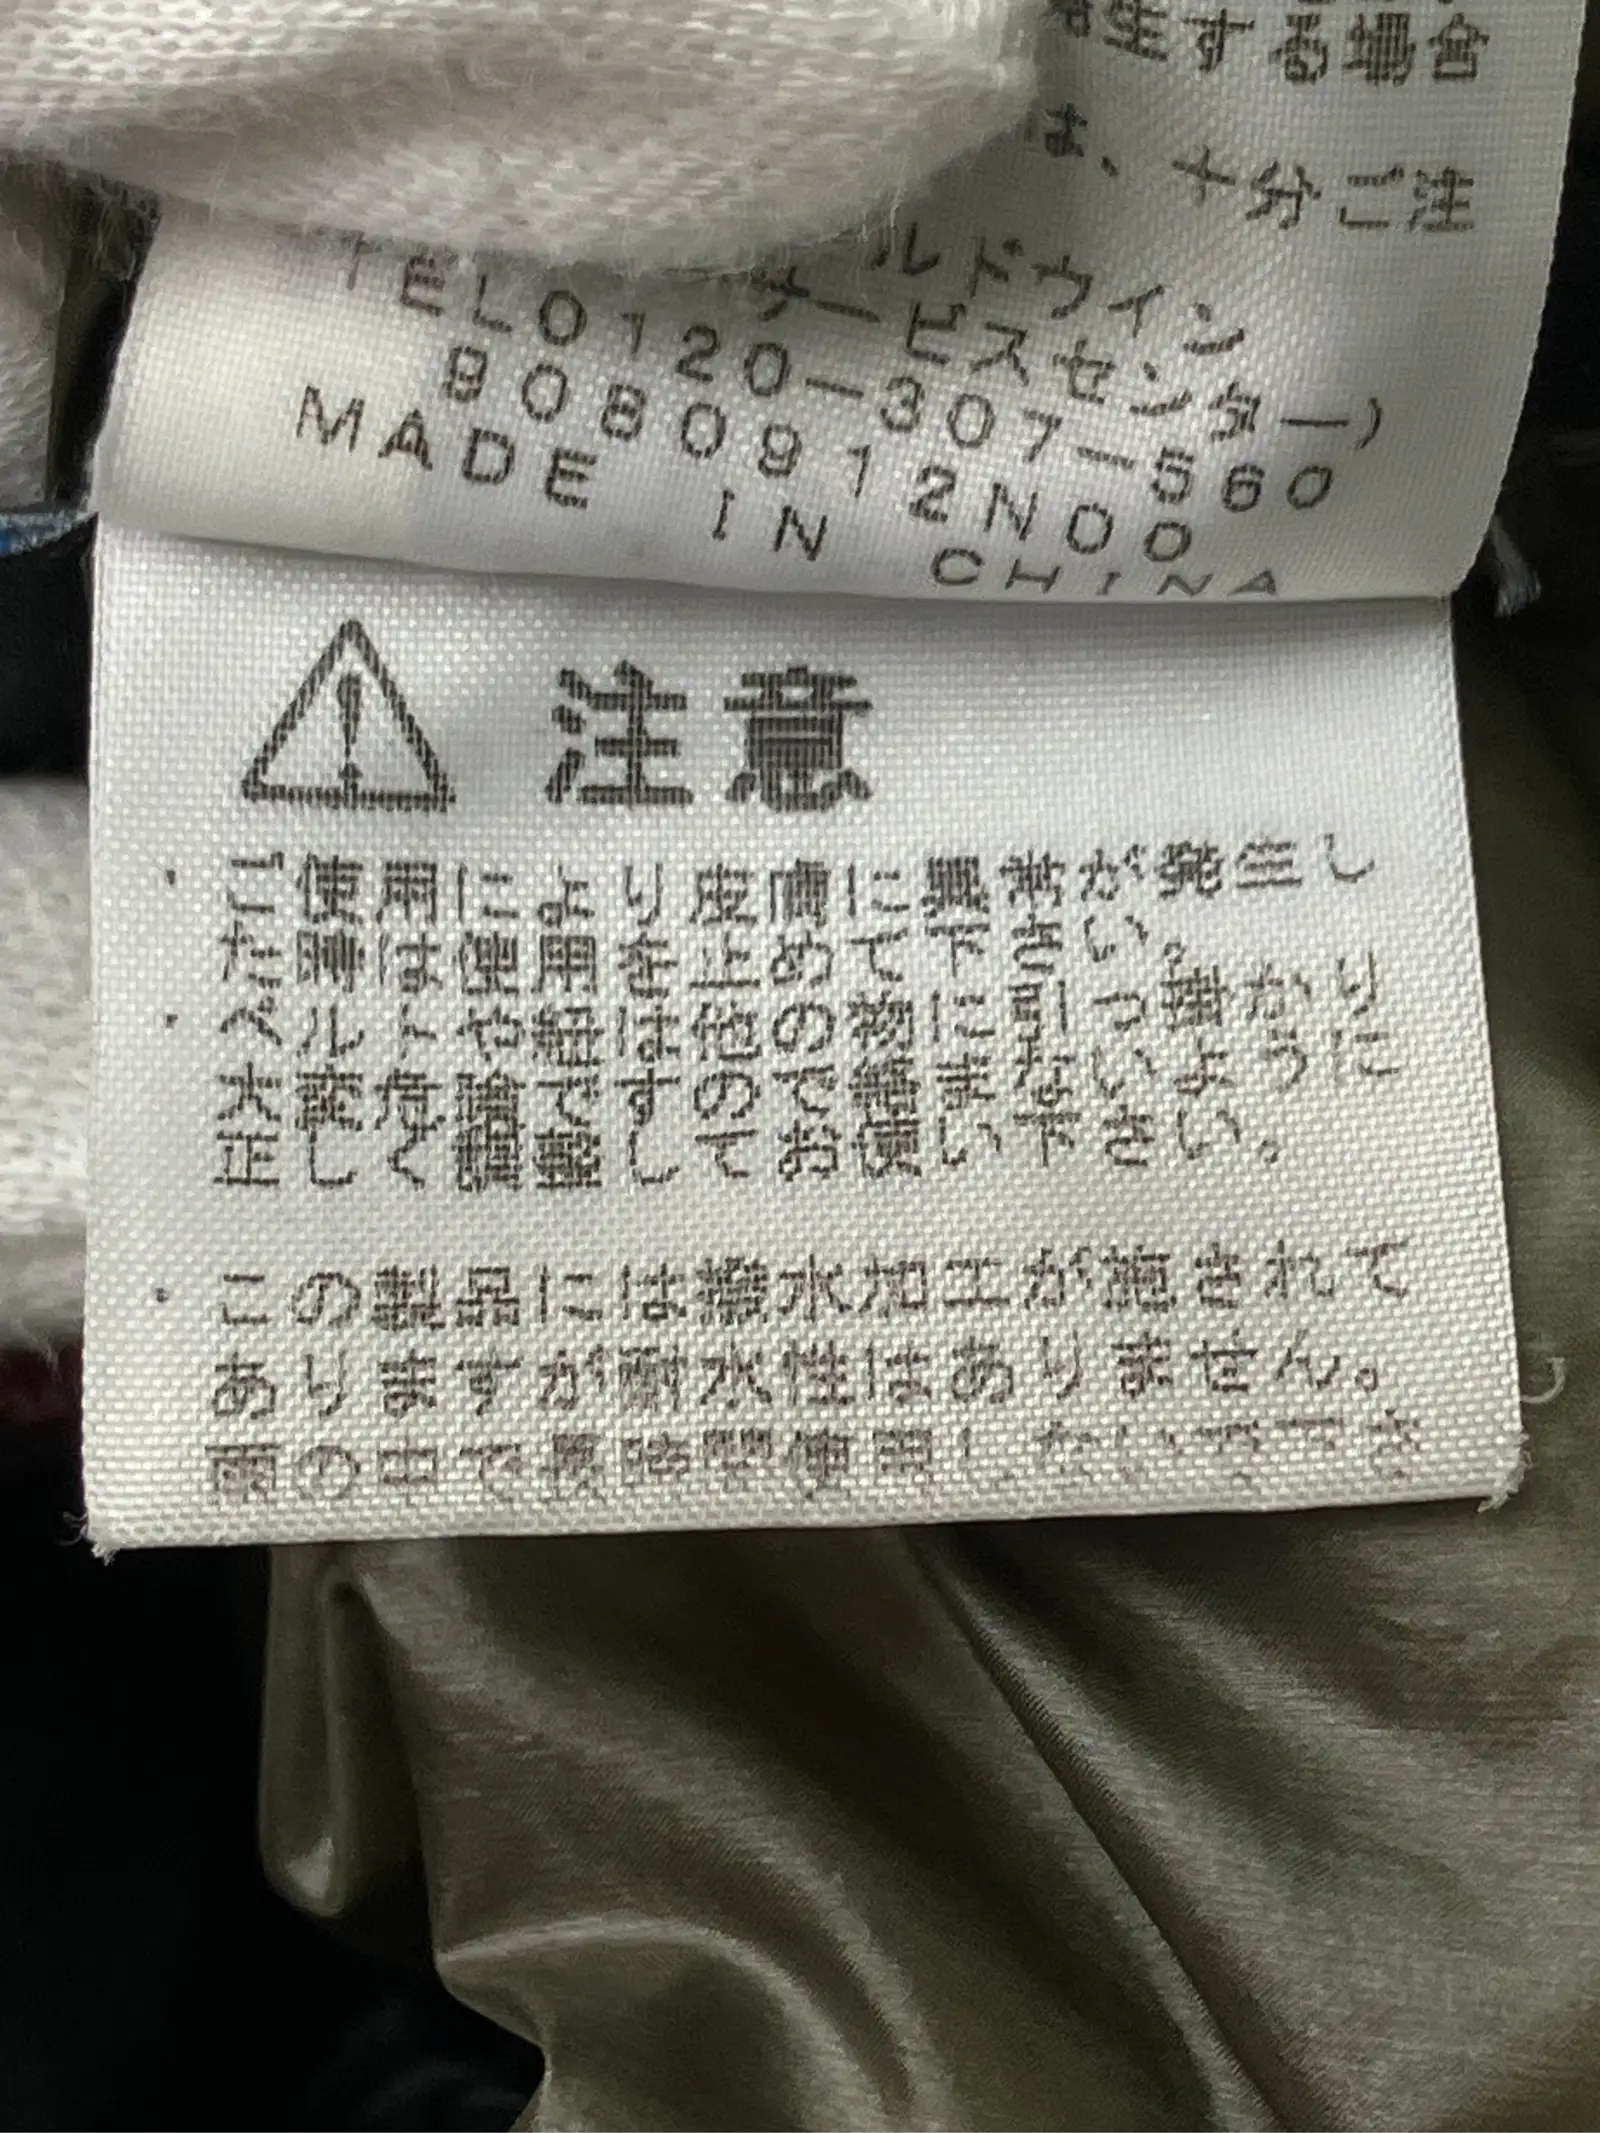 生する場合
は、十分ご注
ルドウイン
サービスセンター)
TEL0120-307-560
9080912N00
MADE IN CHINA
注意
・ご使用により皮膚に異常が発生し
た時は使用を止めて下さい。
・ベルトや紐は他の物に引っ掛かり
大変危険ですので絡まないように
正しく調整してお使い下さい。
・この製品には撥水加工が施されて
ありますが耐水性はありません。
雨の中で長時間使用しないで下さ